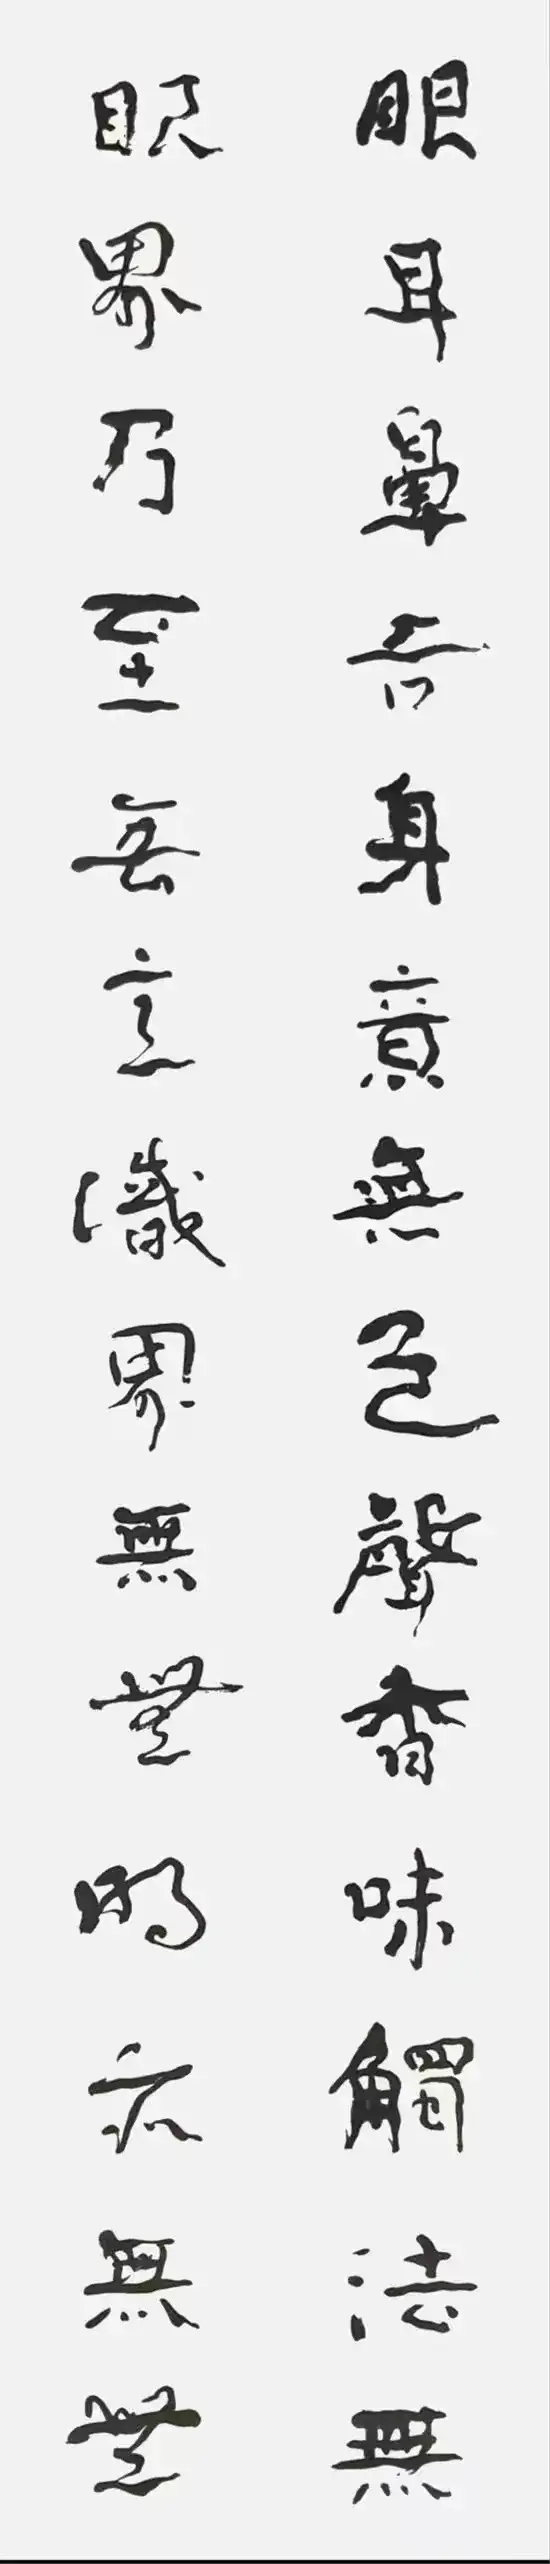 眼耳鼻舌身意無色聲香味觸法無
眼界乃至無意識界無無明亦無無